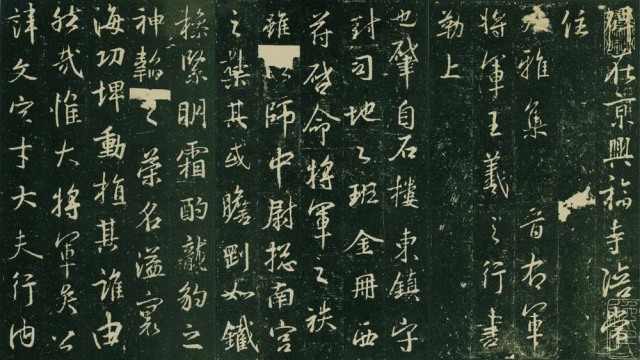 碑在京興福寺陪常
住
大雅集 晉右軍
將軍王羲之行書
勒上
也肇自石樓東鎮字
封司地之班金冊西
符啓命將軍之袟
雖以師中尉揔南宮
之葉其或瞻剛如鐵
操緊明霜酌龍豹之
神韜之榮名溢寰
海功埤動植其誰由
然哉惟大將軍吳公
諱文字才大夫行內